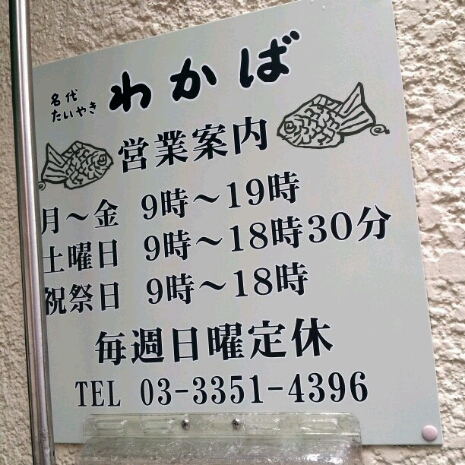 名代
たいやき わかば
営業案内
月～金 9時～19時
土曜日 9時～18時30分
祝祭日 9時～18時
毎週日曜定休
TEL 03-3351-4396